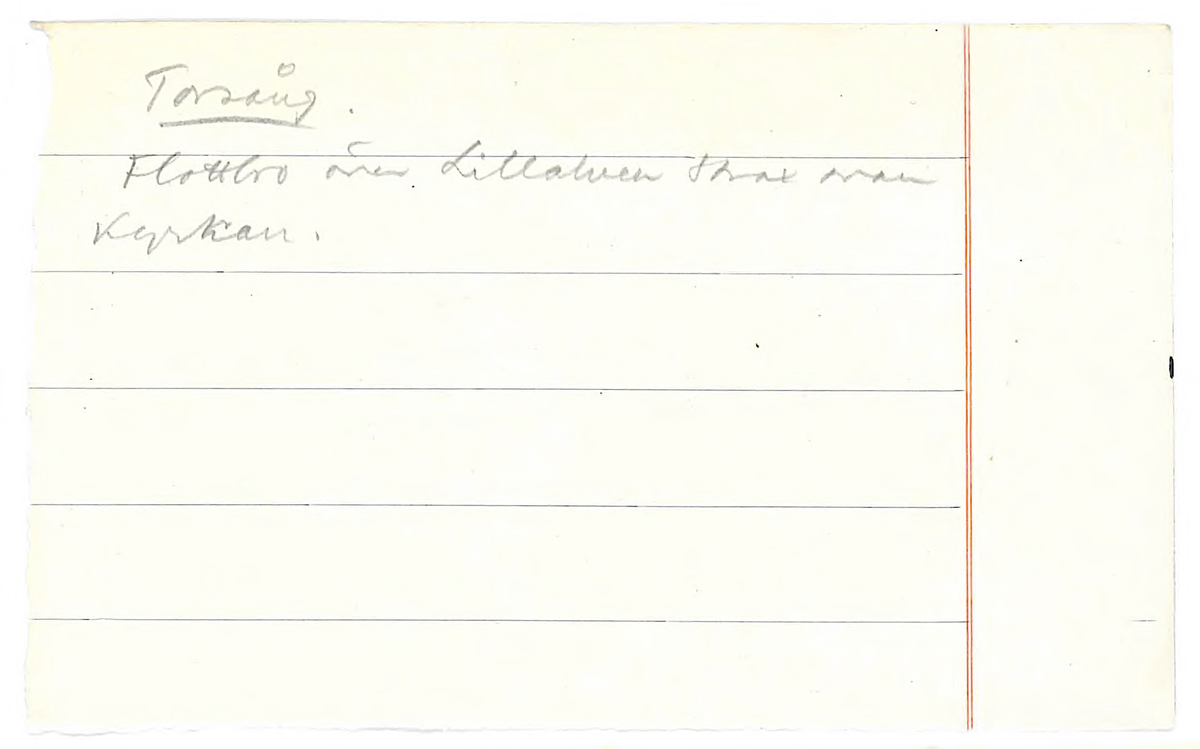 Torsång.
Flottbro över Lillälven strax ovan
Kyrkan.